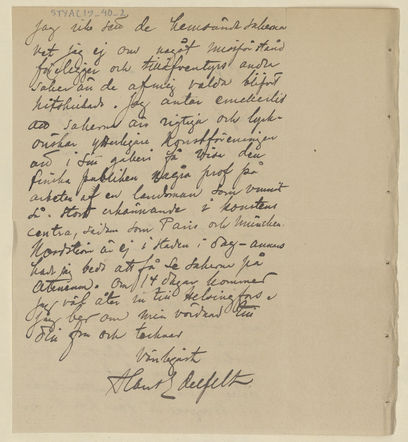 STYAC19_40_2
Jag icke sett de hemsända sakerna
vet jag ej om något missförstånd
föreligger och tilläfventyrs andra
saker än de af mig valda blifvit
hitskickade. Jag antar emellertid
att sakerna äro rigtiga och lyck-
önskar ytterligare Konstföreningen
att i sin galleri få visa den
finska publiken några prof på
arbeten af en landsman som vunnit
så stort erkännande i konstens
centra, sådan som Paris och München.
Nordström är ej i staden i dag - annars
hade jag bedt att få se sakerna på
Ateneum. Om 14 dagar kommer
jag väl åter in till Helsingfors
Jag ber om min vördnad till
din fru och tecknar
Vänligast
Albert Edelfelt